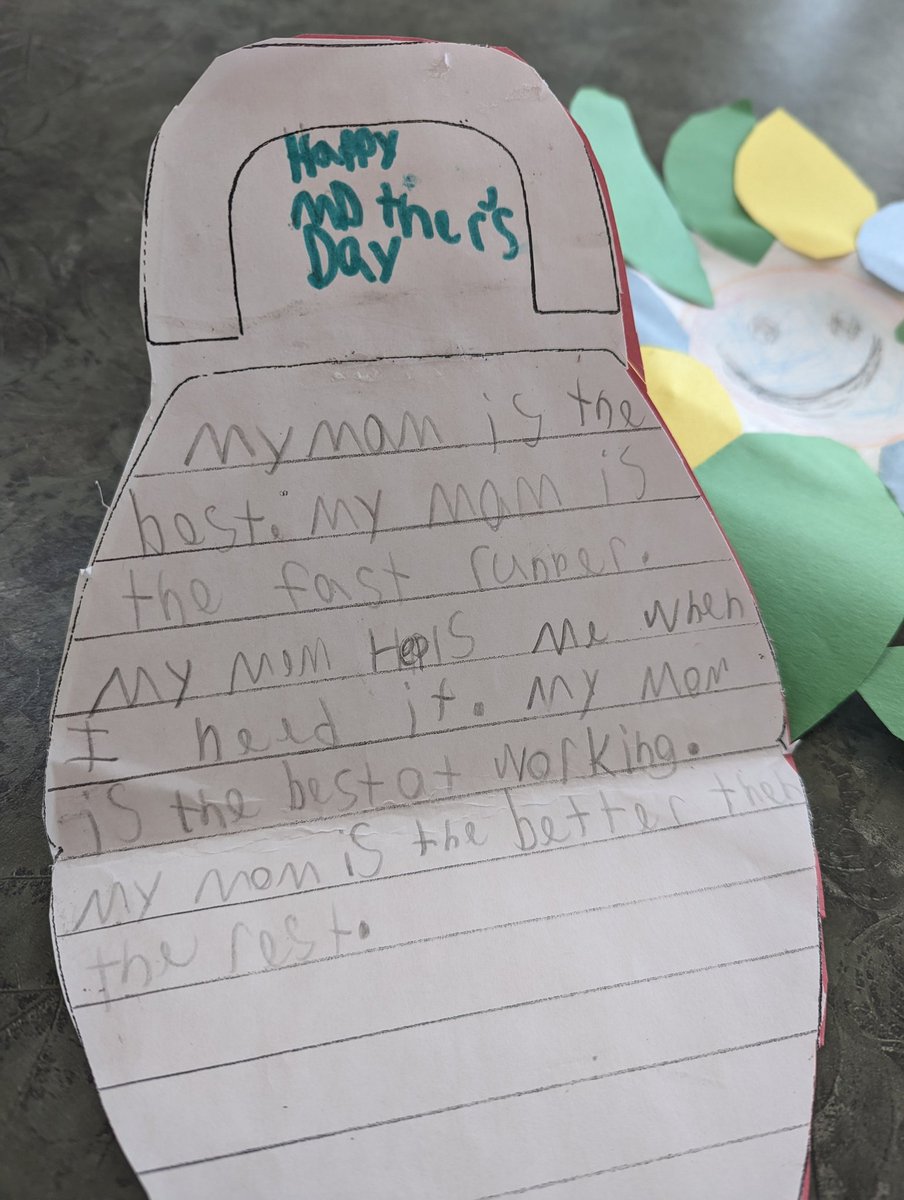 Happy
Mother's
Day
My mom is the
best. My mom is
the fast runner.
My mom Helps me when
I need it. My mom
is the best at working.
My mom is the better then
the rest.